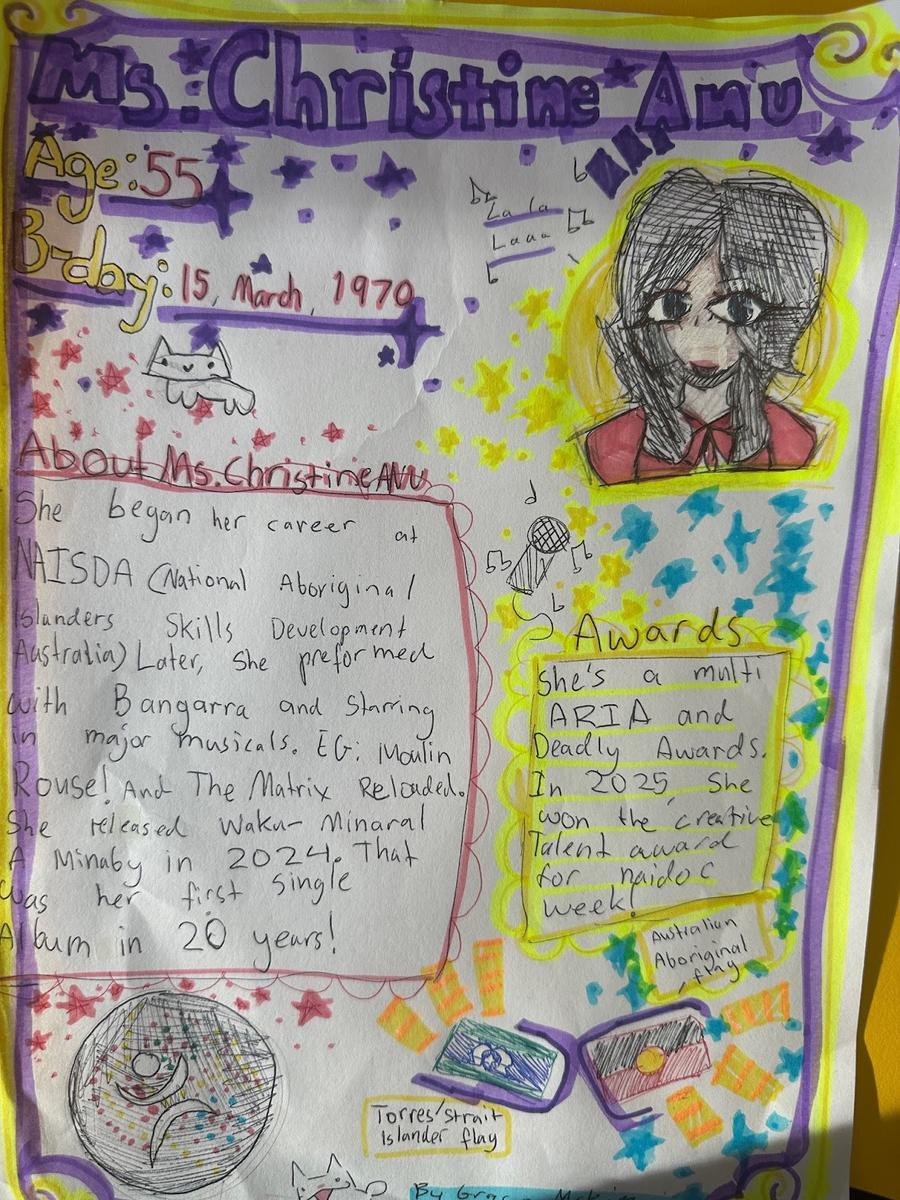 Ms. Christine Anu
Age: 55
B-day: 15, March, 1970
La la
Laaa
About Ms. Christine ANU
She began her career at
NAISDA (National Aboriginal
Islanders Skills Development
Australia) Later, She preformed
with Bangarra and Starring
in major musicals. EG: Moulin
Rouse! And The Matrix Reloaded.
She released Waku- Minaral
A Minaby in 2024. That
was her first single
Album in 20 years!
Awards
She's a multi
ARIA and
Deadly Awards.
In 2025, She
won the creative
Talent award
for naidoc
week!
Australian
Aboriginal
flag
Torres/strait
Islander flag
By